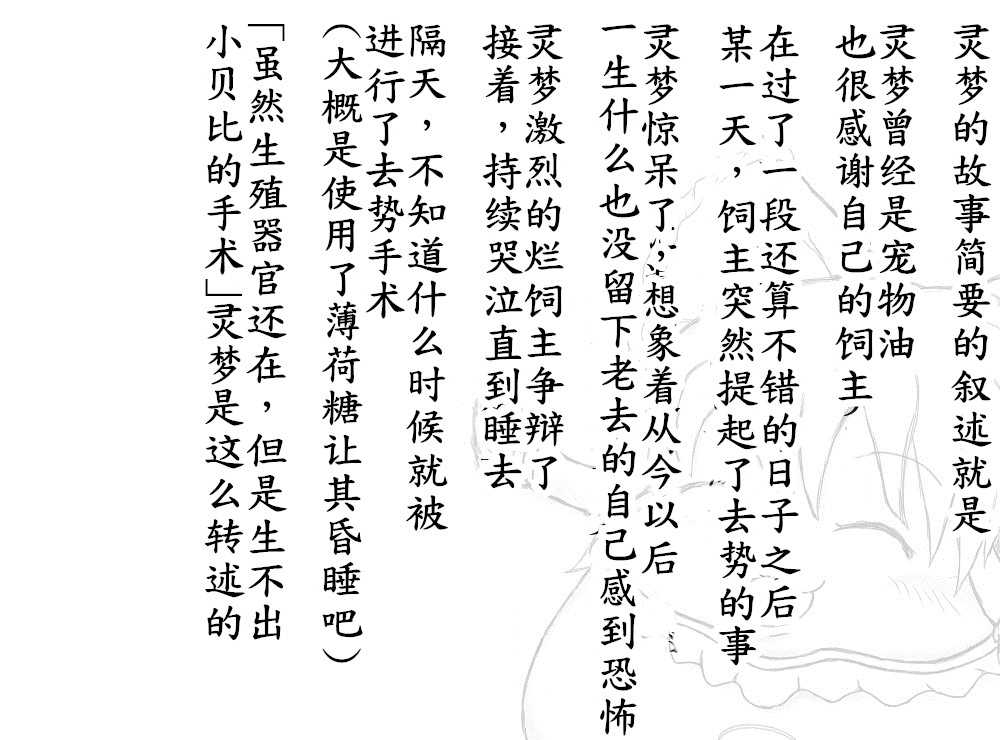 灵梦的故事简要的叙述就是
灵梦曾经是宠物油
也很感谢自己的饲主
在过了一段还算不错的日子之后
某一天，饲主突然提起了去势的事
灵梦惊呆了，想象着从今以后
一生什么也没留下老去的自己感到恐怖
灵梦激烈的烂饲主争辩了
接着，持续哭泣直到睡去
隔天，不知道什么时候就被
进行了去势手术
（大概是使用了薄荷糖让其昏睡吧）
「虽然生殖器官还在，但是生不出
小贝比的手术」灵梦是这么转述的